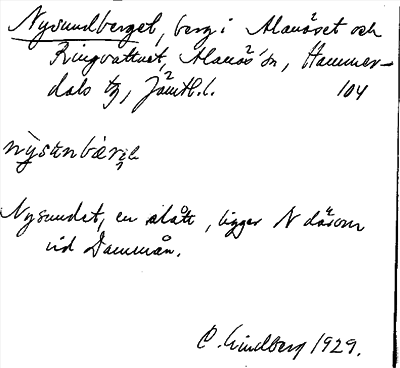 Nysundberget, berg i Alanäset och
Ringvattnet, Alanäs sn, Hammer-
dals tg, Jämtl. l. 104
Nysundet, en slått, ligger N därom
vid Dammån.
O. Lindberg 1929.